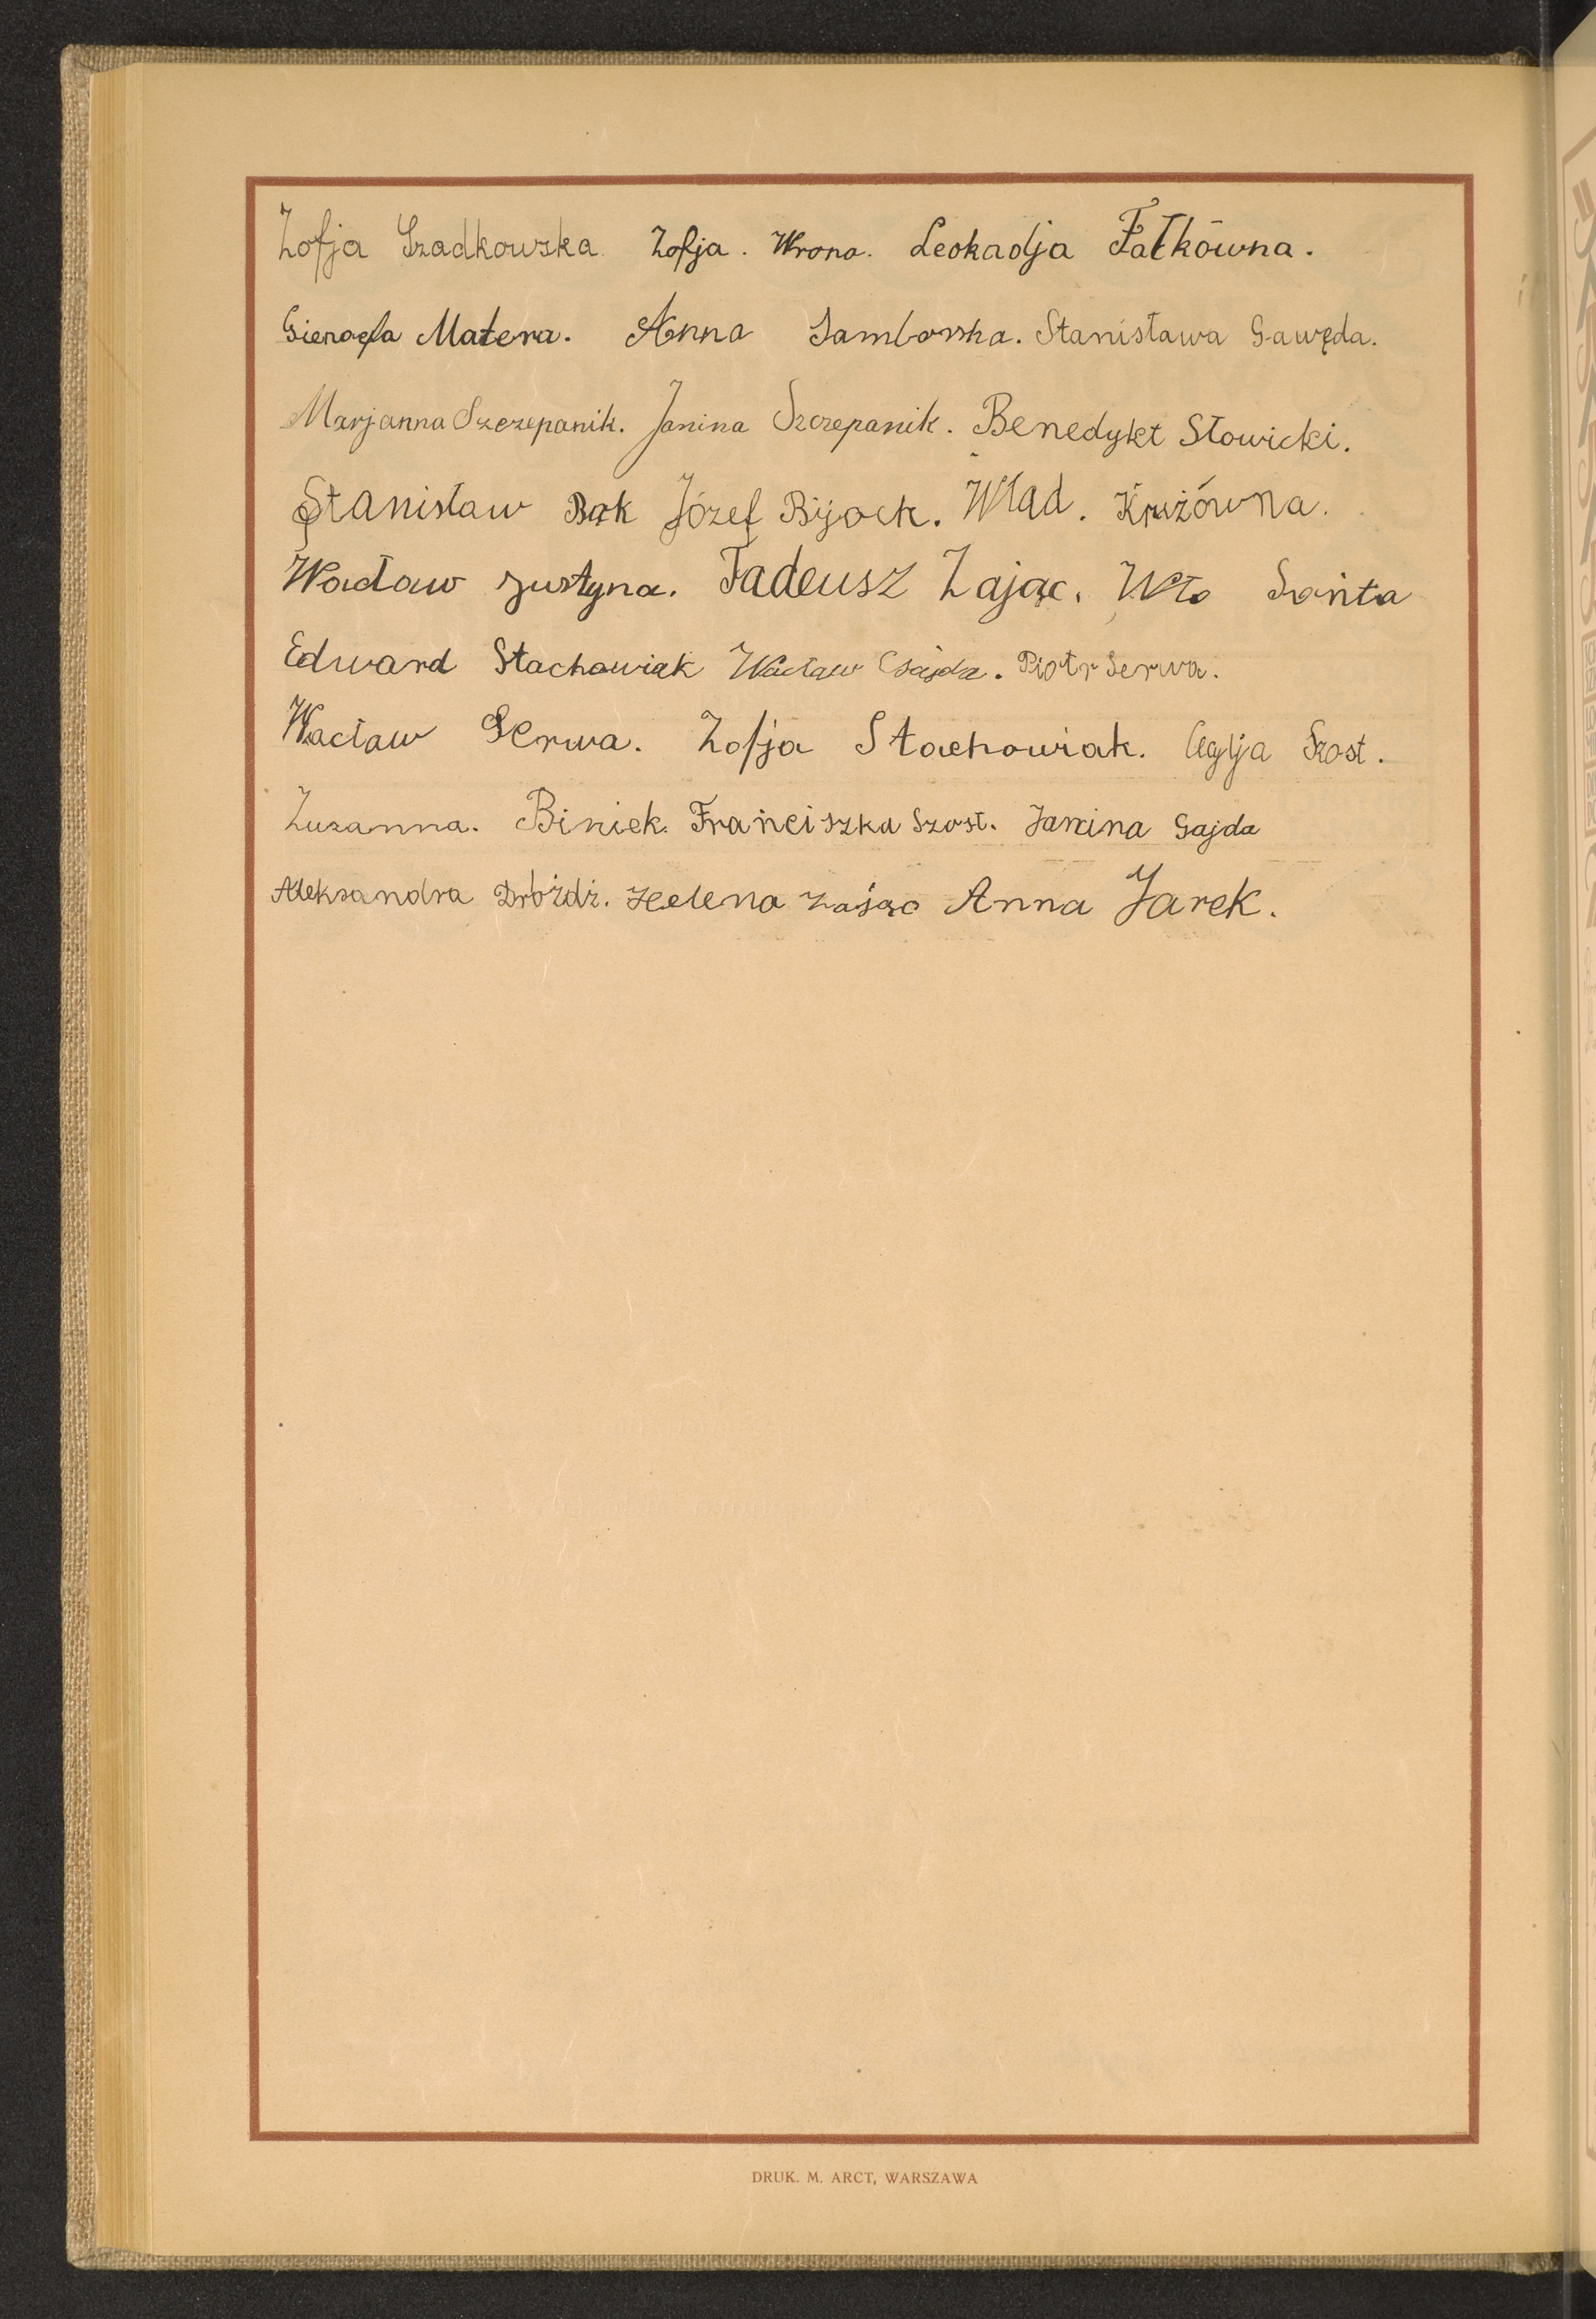 Zofja Szadkowska Zofja. Wrona. Leokadja Fałkówna.
Matera. Anna Samborska. Stanisława Gawęda.
Marjanna Szczepanik. Janina Szczepanik. Benedykt Słowicki.
Stanisław Bąk Józef Bijoch. Wład. Krużówna.
Wacław Justyna. Tadeusz Zając. Wło
Edward Stachowiak Wacław Gajda. Piotr Serwa.
Wacław Serwa. Zofja Stachowiak. Szost.
Zuzanna. Biniek. Franciszka Szost. Janina Gajda
Aleksandra Dróżdż. Helena Zając Anna Jarek.
DRUK. M. ARCT, WARSZAWA